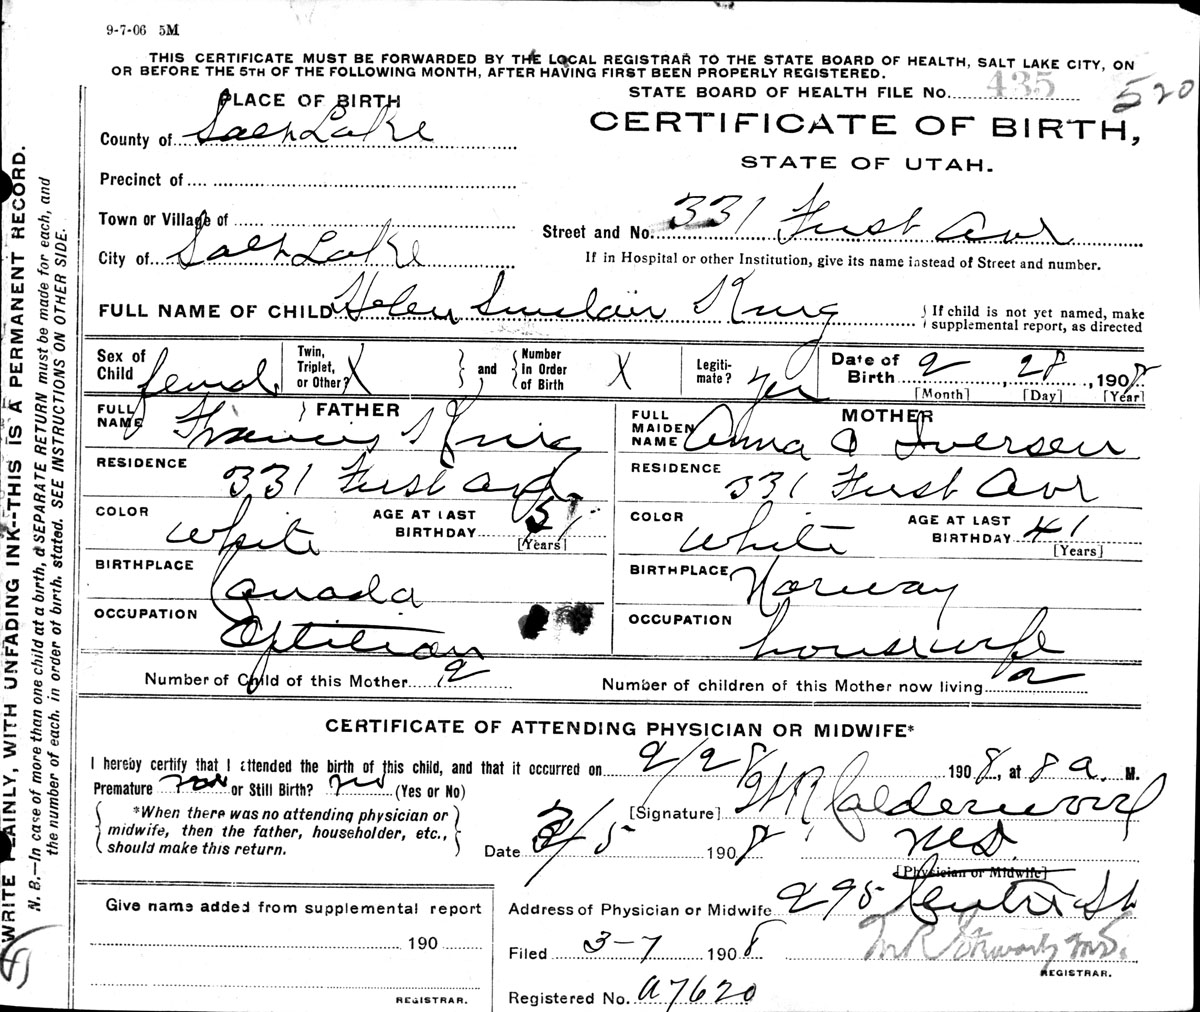 9-7-06 5M
THIS CERTIFICATE MUST BE FORWARDED BY THE LOCAL REGISTRAR TO THE STATE BOARD OF HEALTH, SALT LAKE CITY, ON
OR BEFORE THE 5TH OF THE FOLLOWING MONTH, AFTER HAVING FIRST BEEN PROPERLY REGISTERED.
STATE BOARD OF HEALTH FILE No. 435 520
PLACE OF BIRTH
CERTIFICATE OF BIRTH,
STATE OF UTAH.
County of Salt Lake
Precinct of
Town or Village of
Street and No. 331 First Ave
City of Salt Lake
If in Hospital or other Institution, give its name instead of Street and number.
FULL NAME OF CHILD Helen Sinclair King } If child is not yet named, make
supplemental report, as directed
Sex of Child female Twin, Triplet, or Other? X } and { Number In Order of Birth X Legitimate? yes Date of Birth 2, 28, 1908
[Month] [Day] [Year]
FULL NAME FATHER Francis King
FULL MAIDEN NAME MOTHER Anna C Iversen
RESIDENCE 331 First Ave
RESIDENCE 331 First Ave
COLOR White AGE AT LAST BIRTHDAY 51 [Years]
COLOR White AGE AT LAST BIRTHDAY 41 [Years]
BIRTHPLACE Canada
BIRTHPLACE Norway
OCCUPATION Optitian
OCCUPATION housewife
Number of Child of this Mother 2 Number of children of this Mother now living 2
CERTIFICATE OF ATTENDING PHYSICIAN OR MIDWIFE*
I hereby certify that I attended the birth of this child, and that it occurred on 2/28 1908, at 8 a. M.
Premature no or Still Birth? no (Yes or No)
*When there was no attending physician or
midwife, then the father, householder, etc.,
should make this return.
[Signature] Calderwood
Date 3/5 1908 M.D.
[Physician or Midwife]
Address of Physician or Midwife 295 Center St
Give name added from supplemental report
190
REGISTRAR.
Filed 3-7 1908 M.D.
REGISTRAR.
Registered No. a7620
WRITE PLAINLY, WITH UNFADING INK--THIS IS A PERMANENT RECORD.
N. B.—In case of more than one child at a birth, a SEPARATE RETURN must be made for each, and
the number of each, in order of birth, stated. SEE INSTRUCTIONS ON OTHER SIDE.